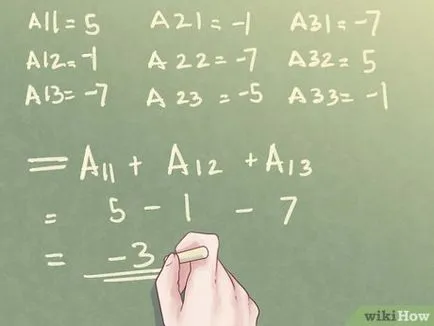 A11 = 5 A21 = -1 A31 = -7
A12 = -1 A22 = -7 A32 = 5
A13 = -7 A23 = -5 A33 = -1
= A11 + A12 + A13
= 5 - 1 - 7
= -3
wikiHow